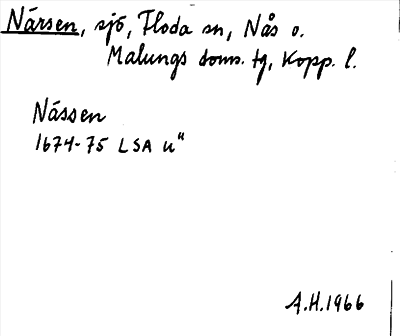 Närsen, sjö, Floda sn, Nås o.
Malungs doms. tg, Kopp. l.
Nässen
1674-75 LSA u"
A.H.1966